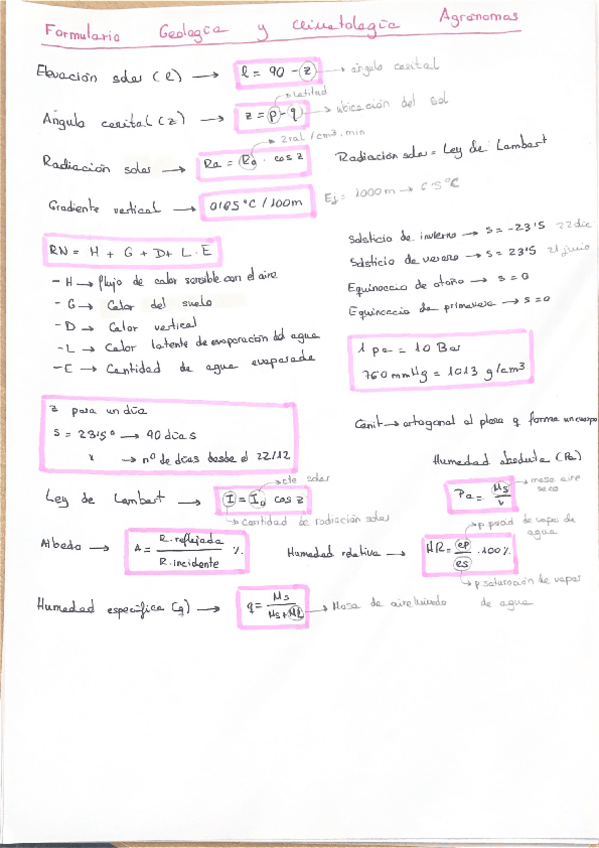 Formulario Geologia y climatologia Agrónomos
Elevación solar (l) → l = 90 - z → ángulo cenital
Angulo cenital (z) → z = p - q → ubicación del sol
latitud
Radiación solar → Ra = R0 · cos z
2 cal/cm³·min
Radiación solar = Ley de Lambert
Gradiente vertical → 0'65 °C/100m
Ej = 1000m → 6'5 °C
RN = H + G + D + L·E
- H → flujo de calor sensible con el aire
- G → Calor del suelo
- D → Calor vertical
- L → Calor latente de evaporación del agua
- E → Cantidad de agua evaporada
Solsticio de invierno → s = -23'5 22 dic
Solsticio de verano → s = 23'5 21 junio
Equinoccio de otoño → s = 0
Equinoccio de primavera → s = 0
1 pa = 10 Bar
760 mmHg = 1013 g/cm³
z para un día
s = 23'5° → 90 días
x → nº de días desde el 22/12
Cenit → ortogonal al plano q forma un cuerpo
Humedad absoluta (Pa)
Pa = Ms/v
masa aire seco
Ley de Lambert → I = I0 cos z
cte solar
cantidad de radiación solar
Albedo → A = R. reflejada / R. incidente %
Humedad relativa → HR = ep/es · 100%
p. parcial de vapor de agua
p saturación de vapor de agua
Humedad específica (q) → q = Ms / Ms + Ml → Masa de aire húmedo